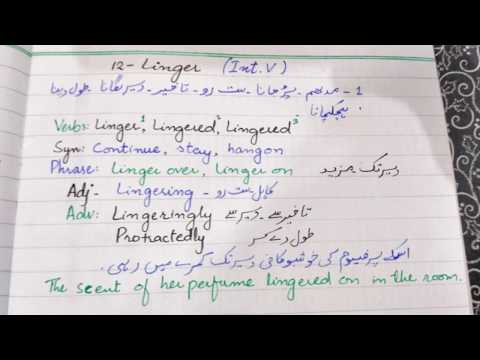 12- Linger (Int.V)
1- مدھم پڑجانا - سست رو - تاخیر - دیر لگانا طول دینا
ہچکچانا
Verbs: Linger¹, Lingered², Lingered³
Syn: Continue, stay, hangon
Phrase: Linger over, Linger on دیر تک، مزید
Adj- Lingering - کاہل سست رو
Adv: Lingeringly تاخیر سے - دیر سے
Protractedly طول دے کر
اسکے پرفیوم کی خوشبو کافی دیر تک کمرے میں رہی۔
The scent of her perfume lingered on in the room.